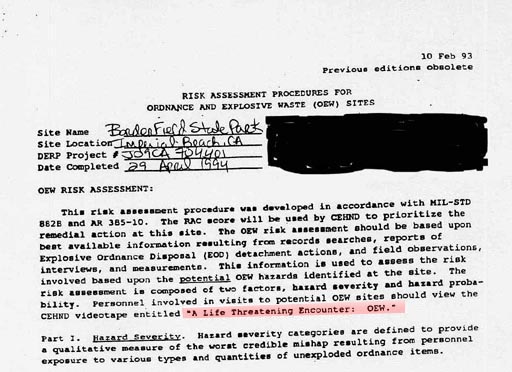 10 Feb 93
Previous editions obsolete
RISK ASSESSMENT PROCEDURES FOR
ORDNANCE AND EXPLOSIVE WASTE (OEW) SITES
Site Name Border Field State Park
Site Location Imperial Beach, CA
DERP Project # J09CA 704401
Date Completed 29 April 1994
OEW RISK ASSESSMENT:
This risk assessment procedure was developed in accordance with MIL-STD
882B and AR 385-10. The RAC score will be used by CEHND to prioritize the
remedial action at this site. The OEW risk assessment should be based upon
best available information resulting from records searches, reports of
Explosive Ordnance Disposal (EOD) detachment actions, and field observations,
interviews, and measurements. This information is used to assess the risk
involved based upon the potential OEW hazards identified at the site. The
risk assessment is composed of two factors, hazard severity and hazard proba-
bility. Personnel involved in visits to potential OEW sites should view the
CEHND videotape entitled "A Life Threatening Encounter: OEW."
Part I. Hazard Severity. Hazard severity categories are defined to provide
a qualitative measure of the worst credible mishap resulting from personnel
exposure to various types and quantities of unexploded ordnance items.